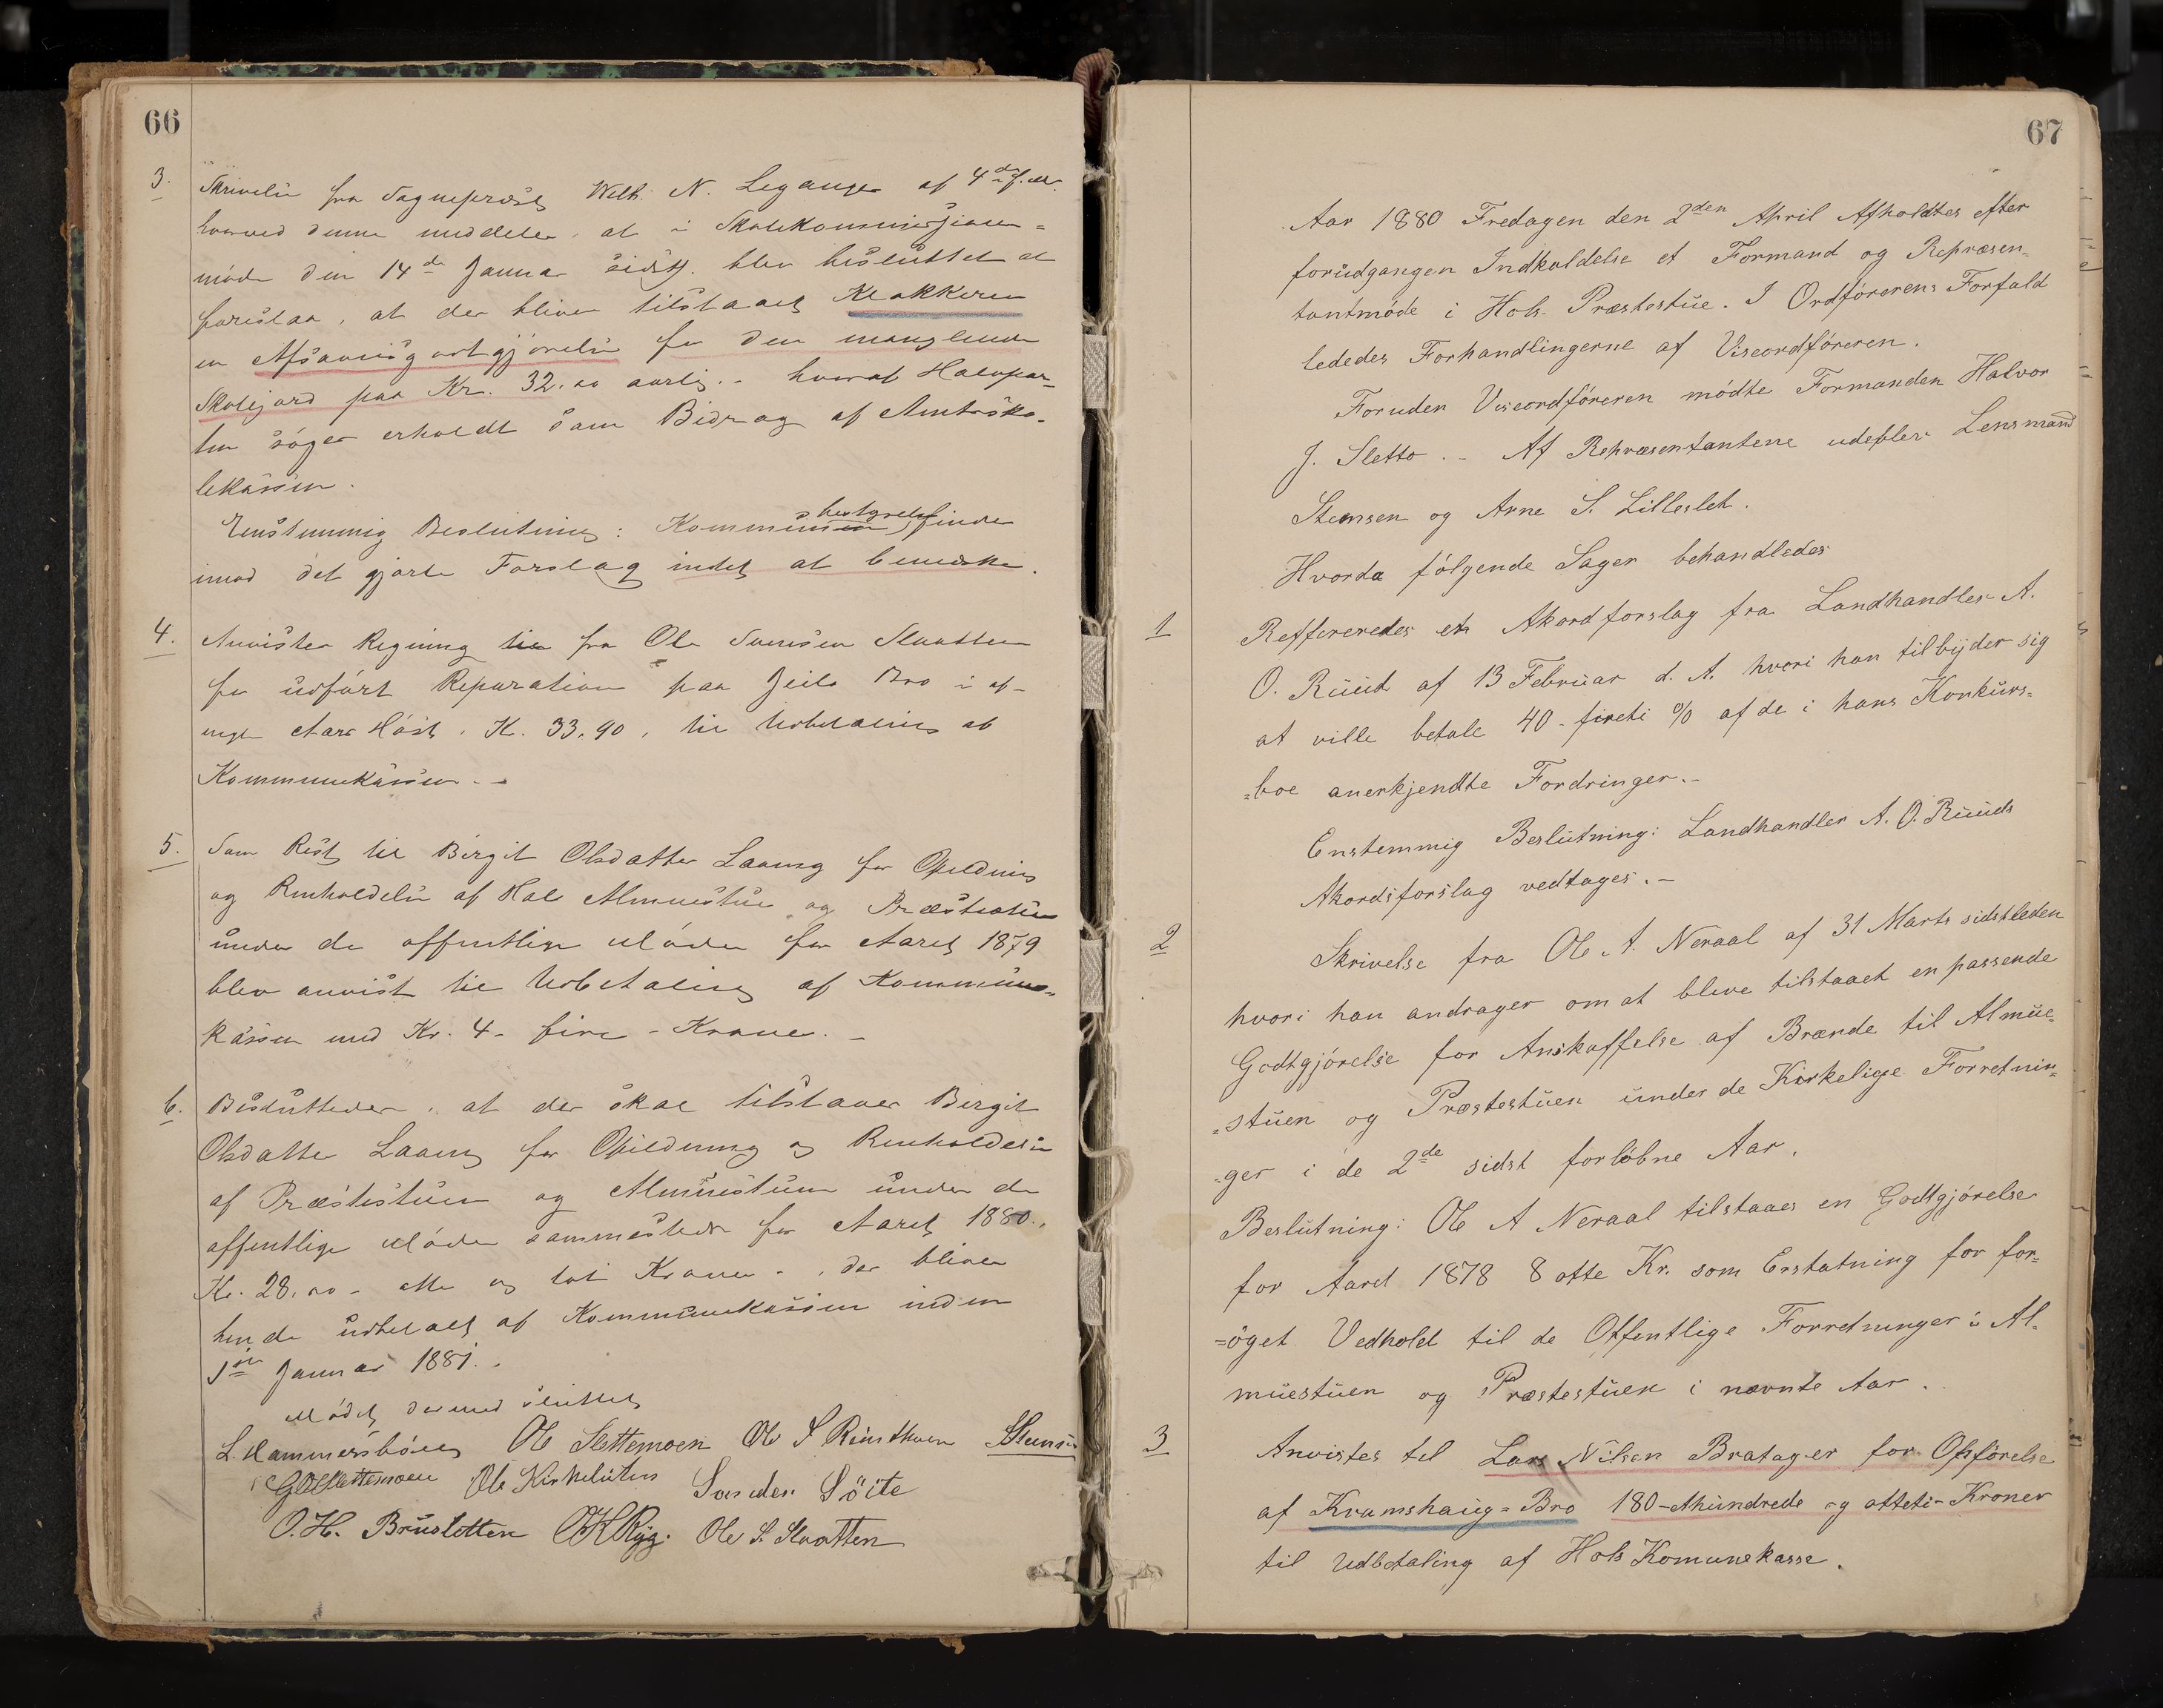 66
3. Skrivelse fra Sognepræst Wilh. N. Leganger af 4de f. M.
hvorved denne meddeler, at i Skolekommissionen=
møde den 14de Januar sidstl. blev besluttet at
foreslaa, at der bliver tilstaaet Klokkeren
en Afsavnsgodtgjørelse for den manglende
Skolejord paa Kr. 32.00 aarlig. - hvoraf Halvpar-
ten søges erholdt som Bidrag af Amtssko-
lekassen.
Enstemmig Beslutning: Kommunebestyrelsen finder
imod det gjorte Forslag intet at bemærke.
4. Anvistes Regning til fra Ole Svensen Slaatten
for udført Reparation paa Geilo Bro i af-
vigte Aars Høst, Kr. 33,90, til Udbetaling af
Kommunekassen. -
5. Som Rest til Birgit Olsdatter Laaung for Opildning
og Renholdelse af Hols Almuestue og Præstestuen
under de offentlige Møder for Aaret 1879
blev anvist til Udbetaling af Kommune-
kassen med Kr. 4 - fire - Kroner. -
6. Besluttedes, at der skal tilstaaes Birgit
Olsdatter Laaung for Opildning og Renholdelse
af Præstestuen og Almuestuen under de
offentlige Møder sammesteds for Aaret 1880.,
Kr. 28.00 - otte og tyve Kroner -, der bliver
hende udbetalt af Kommunekassen inden
1ste Januar 1881. -
Mødet dermed sluttet
L. Hammersbøen Ole Slettemoen Ole S Reinthon SStensen
GOSlettemoen Ole Kirkeluten Sander Söite
O. H. Brusletten OKRyg. Ole S. Slaatten
67
Aar 1880 Fredagen den 2den April Afholdtes efter
forudgangen Indkaldelse et Formand og Repræsen-
tantmöde i Hols Præstestue. I Ordförerens Forfald
lededes Forhandlingerne af Viseordföreren.
Foruden Viseordföreren mödte Formanden Halvor
J. Sletto. - Af Repræsentantene udeblev Lensmand
Stensen og Arne S. Lilleslet.
Hvorda fölgende Sager behandledes
1 Reffereredes et Akordforslag fra Landhandler A.
O. Ruud af 13 Februar d. A. hvori han tilbyder sig
at ville betale 40 - fireti % af de i hans Konkurs=
=boe anerkjendte Fordringer. -
Enstemmig Beslutning: Landhandler A. O. Ruuds
Akordsforslag vedtages. -
2 Skrivelse fra Ole A. Neraal af 31 Marts sidstleden
hvori han andrager om at blive tilstaaet en passende
Godtgjörelse for Anskaffelse af Brænde til Almue=
=stuen og Præstestuen under de Kirkelige Forretnin=
=ger i de 2de sidst forlöbne Aar.
Beslutning: Ole A Neraal tilstaaes en Godtgjörelse
for Aaret 1878 8 otte Kr. som Erstatning for for=
=öget Vedhold til de Offentlige Forretninger i Al-
muestuen og Præstestuen i nævnte Aar.
3 Anvistes til Lars Nilsen Bratager for Opförelse
af Kramshaug=Bro 180 - Ethundrede og otteti - Kroner
til Udbetaling af Hols Komunekasse.